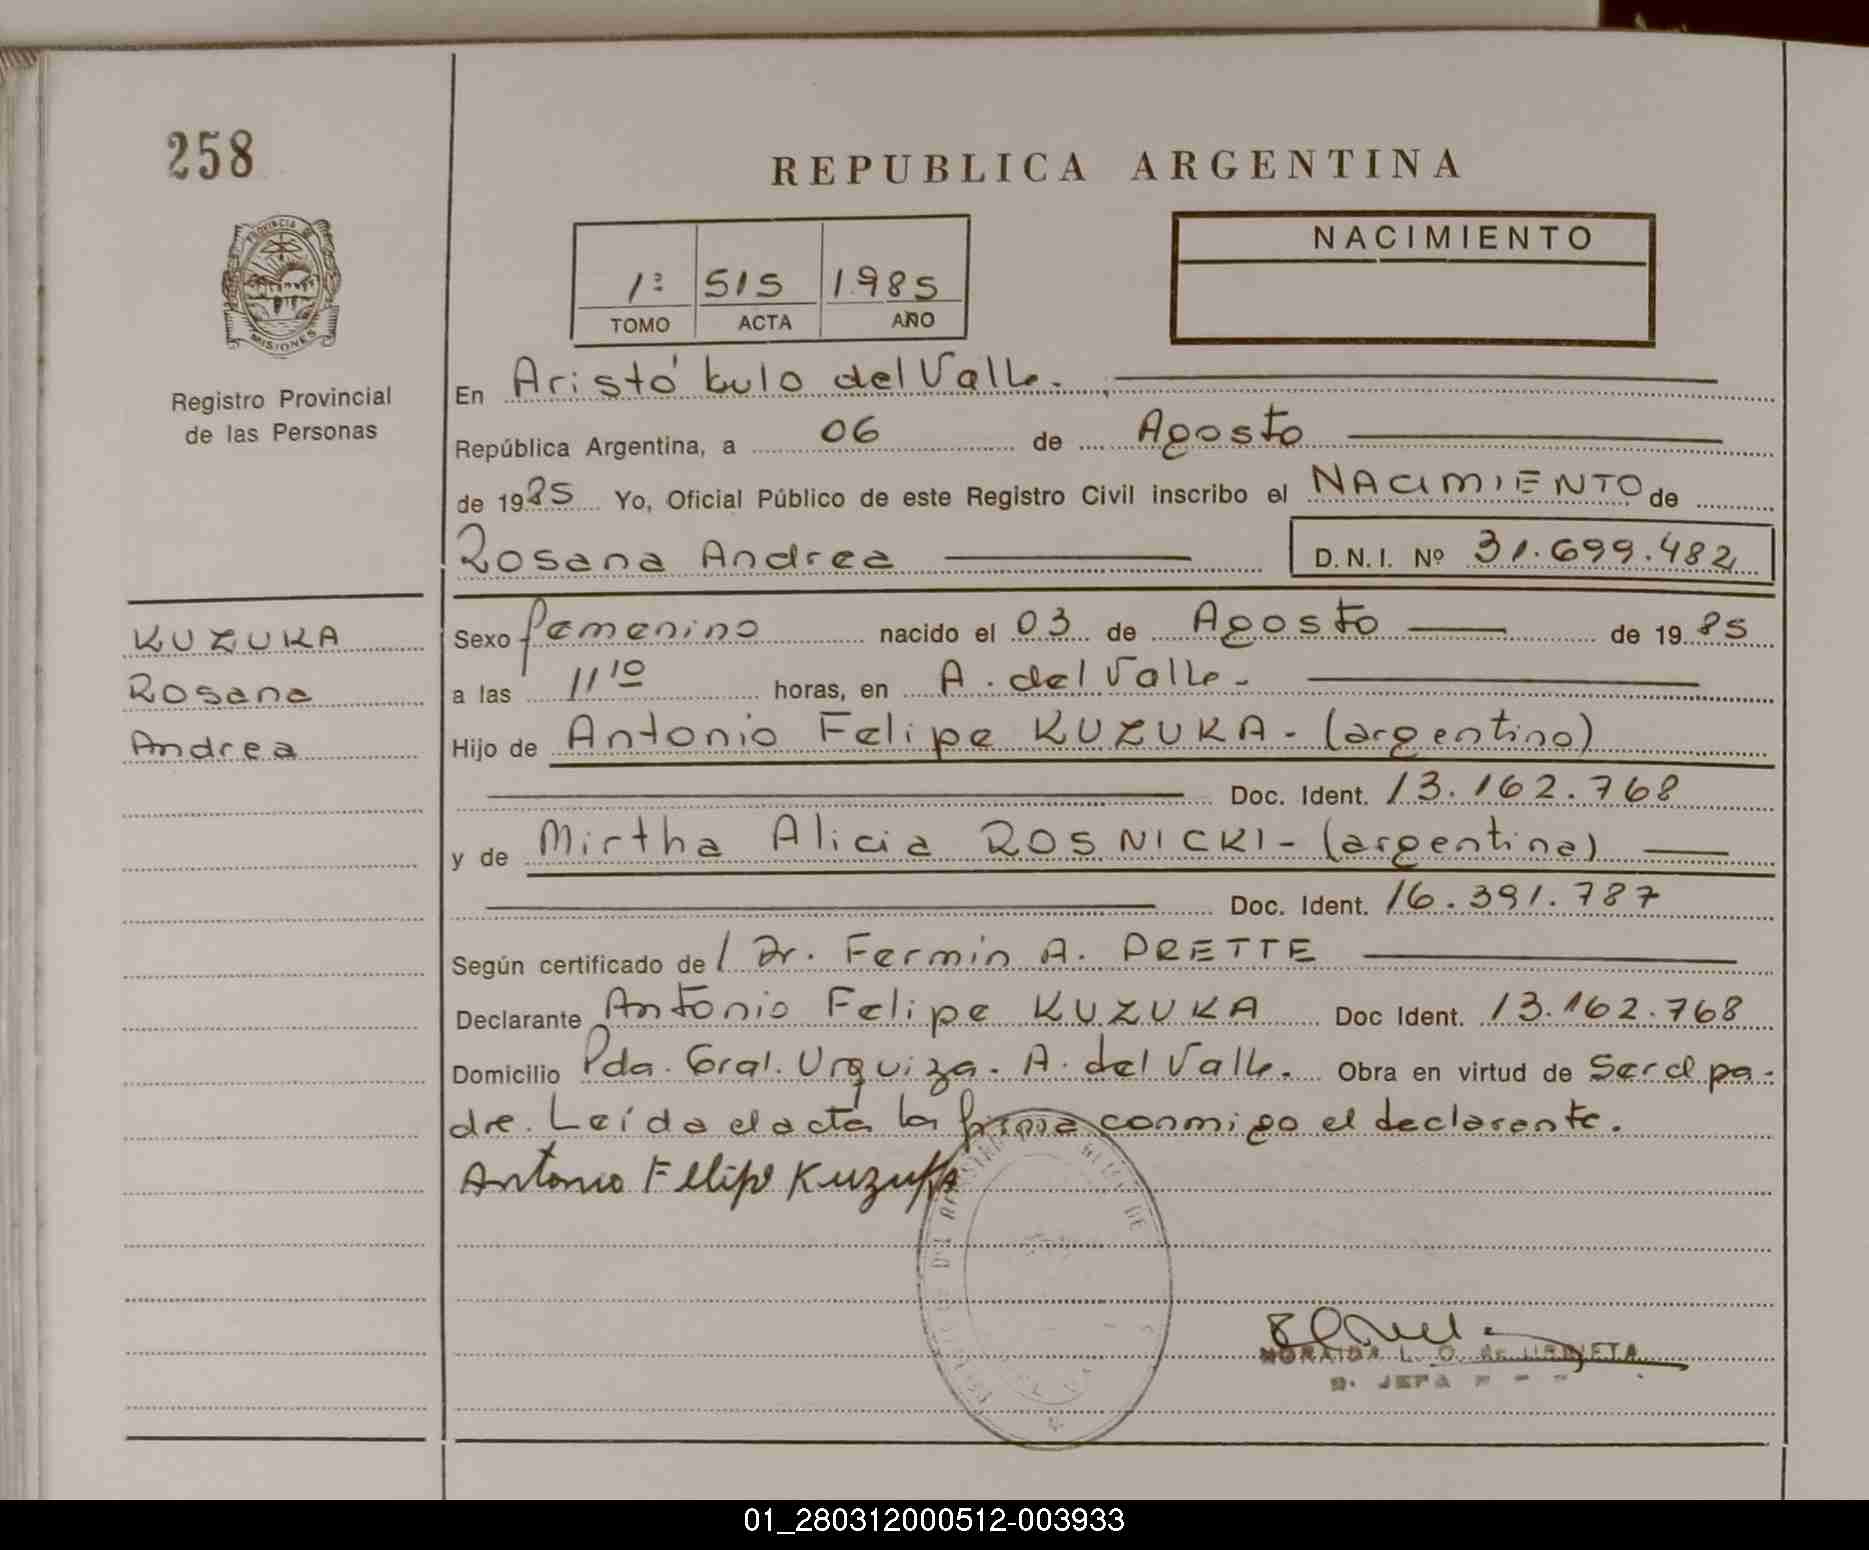 258
REPUBLICA ARGENTINA
PROVINCIA DE
MISIONES
Registro Provincial
de las Personas
1º 515 1985
TOMO ACTA AÑO
NACIMIENTO
En Aristóbulo del Valle.
República Argentina, a 06 de Agosto
de 1985 Yo, Oficial Público de este Registro Civil inscribo el NACIMIENTO de
Rosana Andrea D.N.I. Nº 31.699.482
KUZUKA
Rosana
Andrea
Sexo femenino nacido el 03 de Agosto de 1985
a las 11 10 horas, en A. del Valle.
Hijo de Antonio Felipe KUZUKA - (argentino)
Doc. Ident. 13.162.768
y de Mirtha Alicia ROSNICKI - (argentina)
Doc. Ident. 16.391.787
Según certificado de / Dr. Fermin A. PRETTE
Declarante Antonio Felipe KUZUKA Doc Ident. 13.162.768
Domicilio Pda. Gral. Urquiza. A. del Valle. Obra en virtud de Ser el pa-
dre. Leída el acta la firma conmigo el declarante.
Antonio Felipe Kuzuka
L. O. de URRIETA
JEFA
01_280312000512-003933